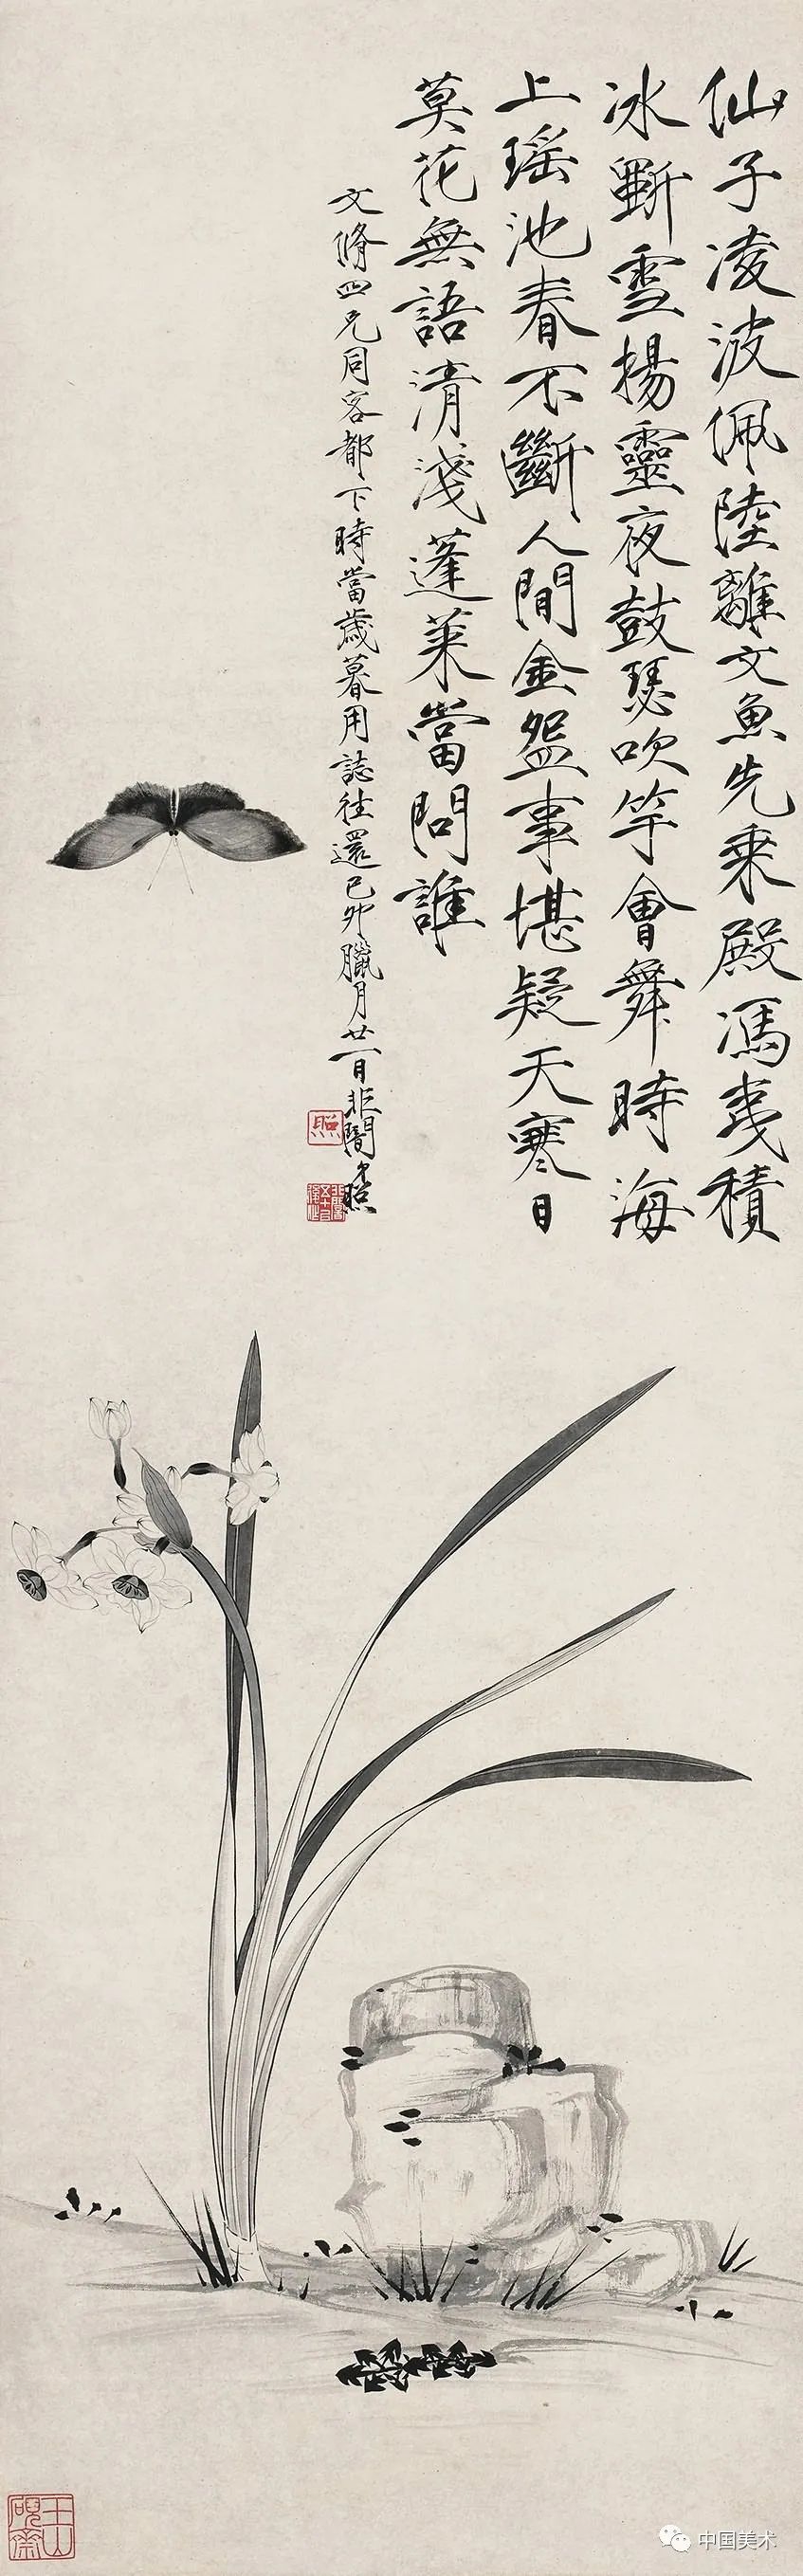 仙子凌波佩陸離文魚先乘殿馮夷積
冰斲雪揚靈夜鼓瑟吹竽會舞時海
上瑤池春不斷人間金盌事堪疑天寒日
莫花無語清淺蓬萊當問誰
文脩四兄同客都下時當歲暮用誌往還己卯臘月廿一日非闇于照
照
玉山
硯齋
中国美术